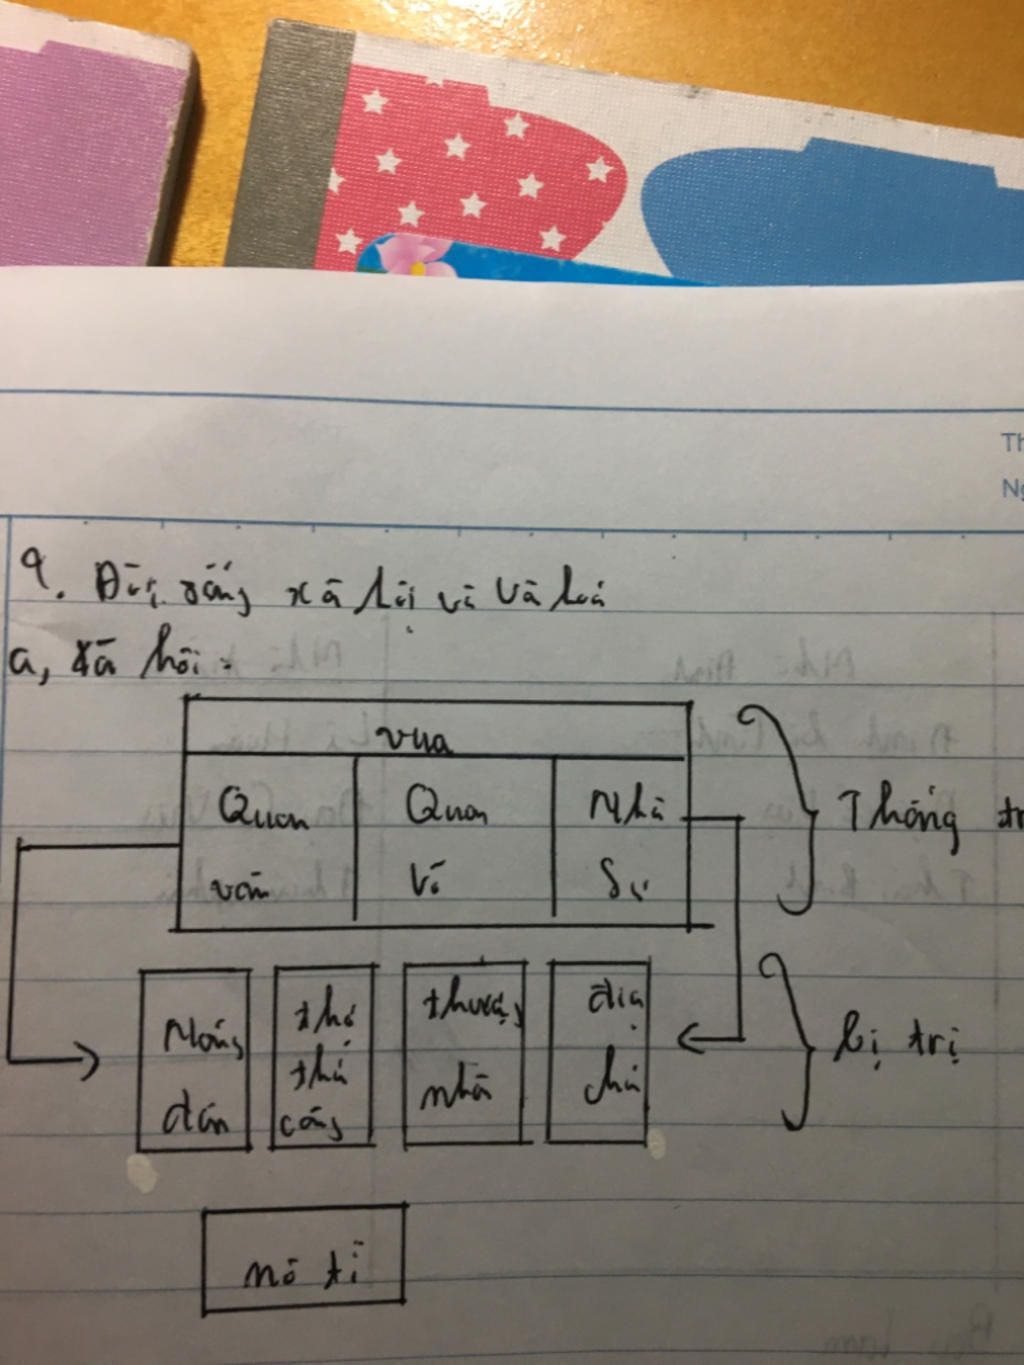 Th
Ng
9. Đời sống xã hội và văn hoá
a, Xã hôi:
vua
Quan văn
Quan Võ
Nhà Sư
Thống tr
Nông dân
thợ thủ công
thương nhân
địa chủ
bị trị
nô tì